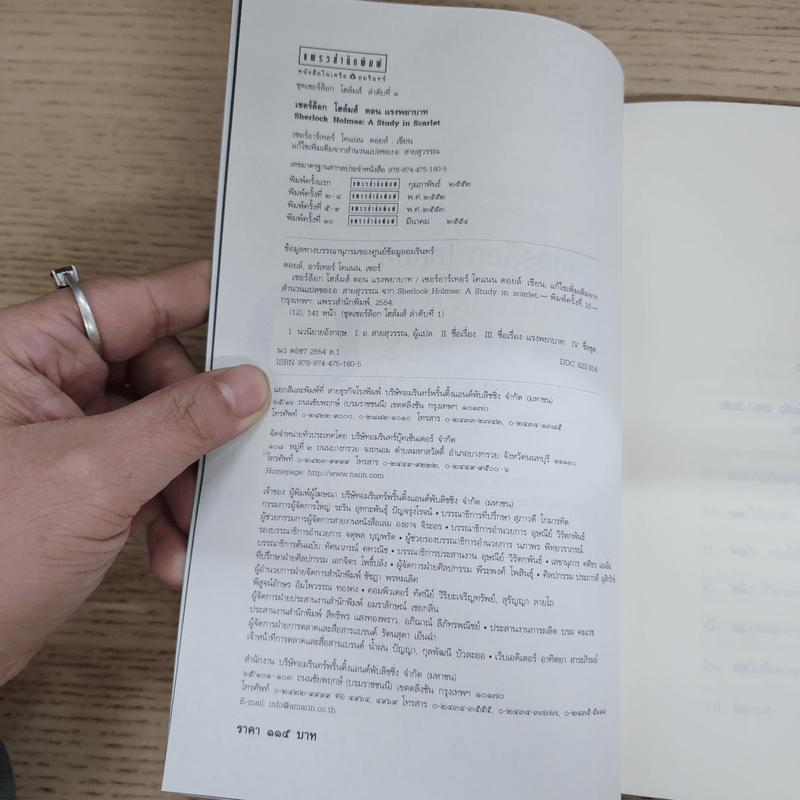 แพรวสำนักพิมพ์
หนังสือในเครือ อมรินทร์
ชุดเชอร์ล็อก โฮล์มส์ ลำดับที่ ๑
เชอร์ล็อก โฮล์มส์ ตอน แรงพยาบาท
Sherlock Holmes: A Study in Scarlet
เซอร์อาร์เทอร์ โคแนน ดอยล์ เขียน
แก้ไขเพิ่มเติมจากสำนวนแปลของ อ. สายสุวรรณ
เลขมาตรฐานสากลประจำหนังสือ 978-974-475-180-5
พิมพ์ครั้งแรก แพรวสำนักพิมพ์ กุมภาพันธ์ ๒๕๕๒
พิมพ์ครั้งที่ ๒-๔ แพรวสำนักพิมพ์ พ.ศ. ๒๕๕๒
พิมพ์ครั้งที่ ๕-๙ แพรวสำนักพิมพ์ พ.ศ. ๒๕๕๓
พิมพ์ครั้งที่ ๑๐ แพรวสำนักพิมพ์ มีนาคม ๒๕๕๔
ข้อมูลทางบรรณานุกรมของศูนย์ข้อมูลอมรินทร์
ดอยล์, อาร์เทอร์ โคแนน, เซอร์.
เชอร์ล็อก โฮล์มส์ ตอน แรงพยาบาท / เซอร์อาร์เทอร์ โคแนน ดอยล์ เขียน; แก้ไขเพิ่มเติมจาก
สำนวนแปลของ อ. สายสุวรรณ จาก Sherlock Holmes: A Study in scarlet.— พิมพ์ครั้งที่ 10.—
กรุงเทพฯ: แพรวสำนักพิมพ์, 2554.
(12), 141 หน้า. (ชุดเชอร์ล็อก โฮล์มส์ ลำดับที่ 1)
1. นวนิยายอังกฤษ. I. อ. สายสุวรรณ, ผู้แปล. II. ชื่อเรื่อง. III. ชื่อเรื่อง: แรงพยาบาท. IV. ชื่อชุด.
นว ด5ช7 2554 ล.1
DDC 823.914
ISBN 978-974-475-180-5
แยกสีและพิมพ์ที่ สายธุรกิจโรงพิมพ์ บริษัทอมรินทร์พริ้นติ้งแอนด์พับลิชชิ่ง จำกัด (มหาชน)
๖๕/๑๖ ถนนชัยพฤกษ์ (บรมราชชนนี) เขตตลิ่งชัน กรุงเทพฯ ๑๐๑๗๐
โทรศัพท์ ๐-๒๔๒๒-๙๐๐๐, ๐-๒๘๘๒-๑๐๑๐ โทรสาร ๐-๒๔๓๓-๒๗๔๒, ๐-๒๔๓๔-๑๓๘๕
จัดจำหน่ายทั่วประเทศโดย บริษัทอมรินทร์บุ๊คเซ็นเตอร์ จำกัด
๑๐๘ หมู่ที่ ๒ ถนนบางกรวย-จงถนอม ตำบลมหาสวัสดิ์ อำเภอบางกรวย จังหวัดนนทบุรี ๑๑๑๓๐
โทรศัพท์ ๐-๒๔๒๓-๙๙๙๙ โทรสาร ๐-๒๔๔๙-๙๒๒๒, ๐-๒๔๔๙-๙๕๐๐-๖
Homepage: http://www.naiin.com
เจ้าของ ผู้พิมพ์ผู้โฆษณา บริษัทอมรินทร์พริ้นติ้งแอนด์พับลิชชิ่ง จำกัด (มหาชน)
กรรมการผู้จัดการใหญ่ ระริน อุทกะพันธุ์ ปัญจรุ่งโรจน์ • บรรณาธิการที่ปรึกษา สุภาวดี โกมารทัต
ผู้ช่วยกรรมการผู้จัดการสายงานหนังสือเล่ม องอาจ จิระอร • บรรณาธิการอำนวยการ อุษณีย์ วิรัตกพันธ์
รองบรรณาธิการอำนวยการ จตุพล บุญพรัด • ผู้ช่วยรองบรรณาธิการอำนวยการ นภาพร พิทยาวราภรณ์
บรรณาธิการต้นฉบับ ทัศนาภรณ์ คทวณิช • บรรณาธิการประสานงาน อุษณีย์ วิรัตกพันธ์ • เลขานุการ
ที่ปรึกษาฝ่ายศิลปกรรม เอกจิตร โพธิ์ปลั่ง • ผู้จัดการฝ่ายศิลปกรรม พีระพงศ์ โพสินธุ์ • ศิลปกรรม ประภาวดี
ผู้อำนวยการฝ่ายจัดการสำนักพิมพ์ ชัชฎา พรหมเลิศ
พิสูจน์อักษร อัมไพวรรณ ทองคง • คอมพิวเตอร์ ทัศนีย์ วิริยะเจริญทรัพย์, สุรัญญา ลายโถ
ผู้จัดการฝ่ายประสานงานสำนักพิมพ์ อมราลักษณ์ เชยกลิ่น
ประสานงานสำนักพิมพ์ สิทธิพร แสงทองพราว, อภิฌาณ์ ลีภัทรพณิชย์ • ประสานงานการผลิต บรม คมเวช
ผู้จัดการฝ่ายการตลาดและสื่อสารแบรนด์ รัตนสุดา เย็นฉ่ำ
เจ้าหน้าที่การตลาดและสื่อสารแบรนด์ น้ำฝน ปัญญา, กุลพัฒนี บัวละออ • เว็บเอดิเตอร์ อาทิตยา สาระภิรมย์
สำนักงาน บริษัทอมรินทร์พริ้นติ้งแอนด์พับลิชชิ่ง จำกัด (มหาชน)
๖๕/๑๐๑-๑๐๓ ถนนชัยพฤกษ์ (บรมราชชนนี) เขตตลิ่งชัน กรุงเทพฯ ๑๐๑๗๐
โทรศัพท์ ๐-๒๔๒๒-๙๙๙๙ ต่อ ๔๙๖๔, ๔๙๖๙ โทรสาร ๐-๒๔๓๔-๓๕๕๕, ๐-๒๔๓๔-๓๗๗๗,
E-mail: info@amarin.co.th
ราคา ๑๑๕ บาท